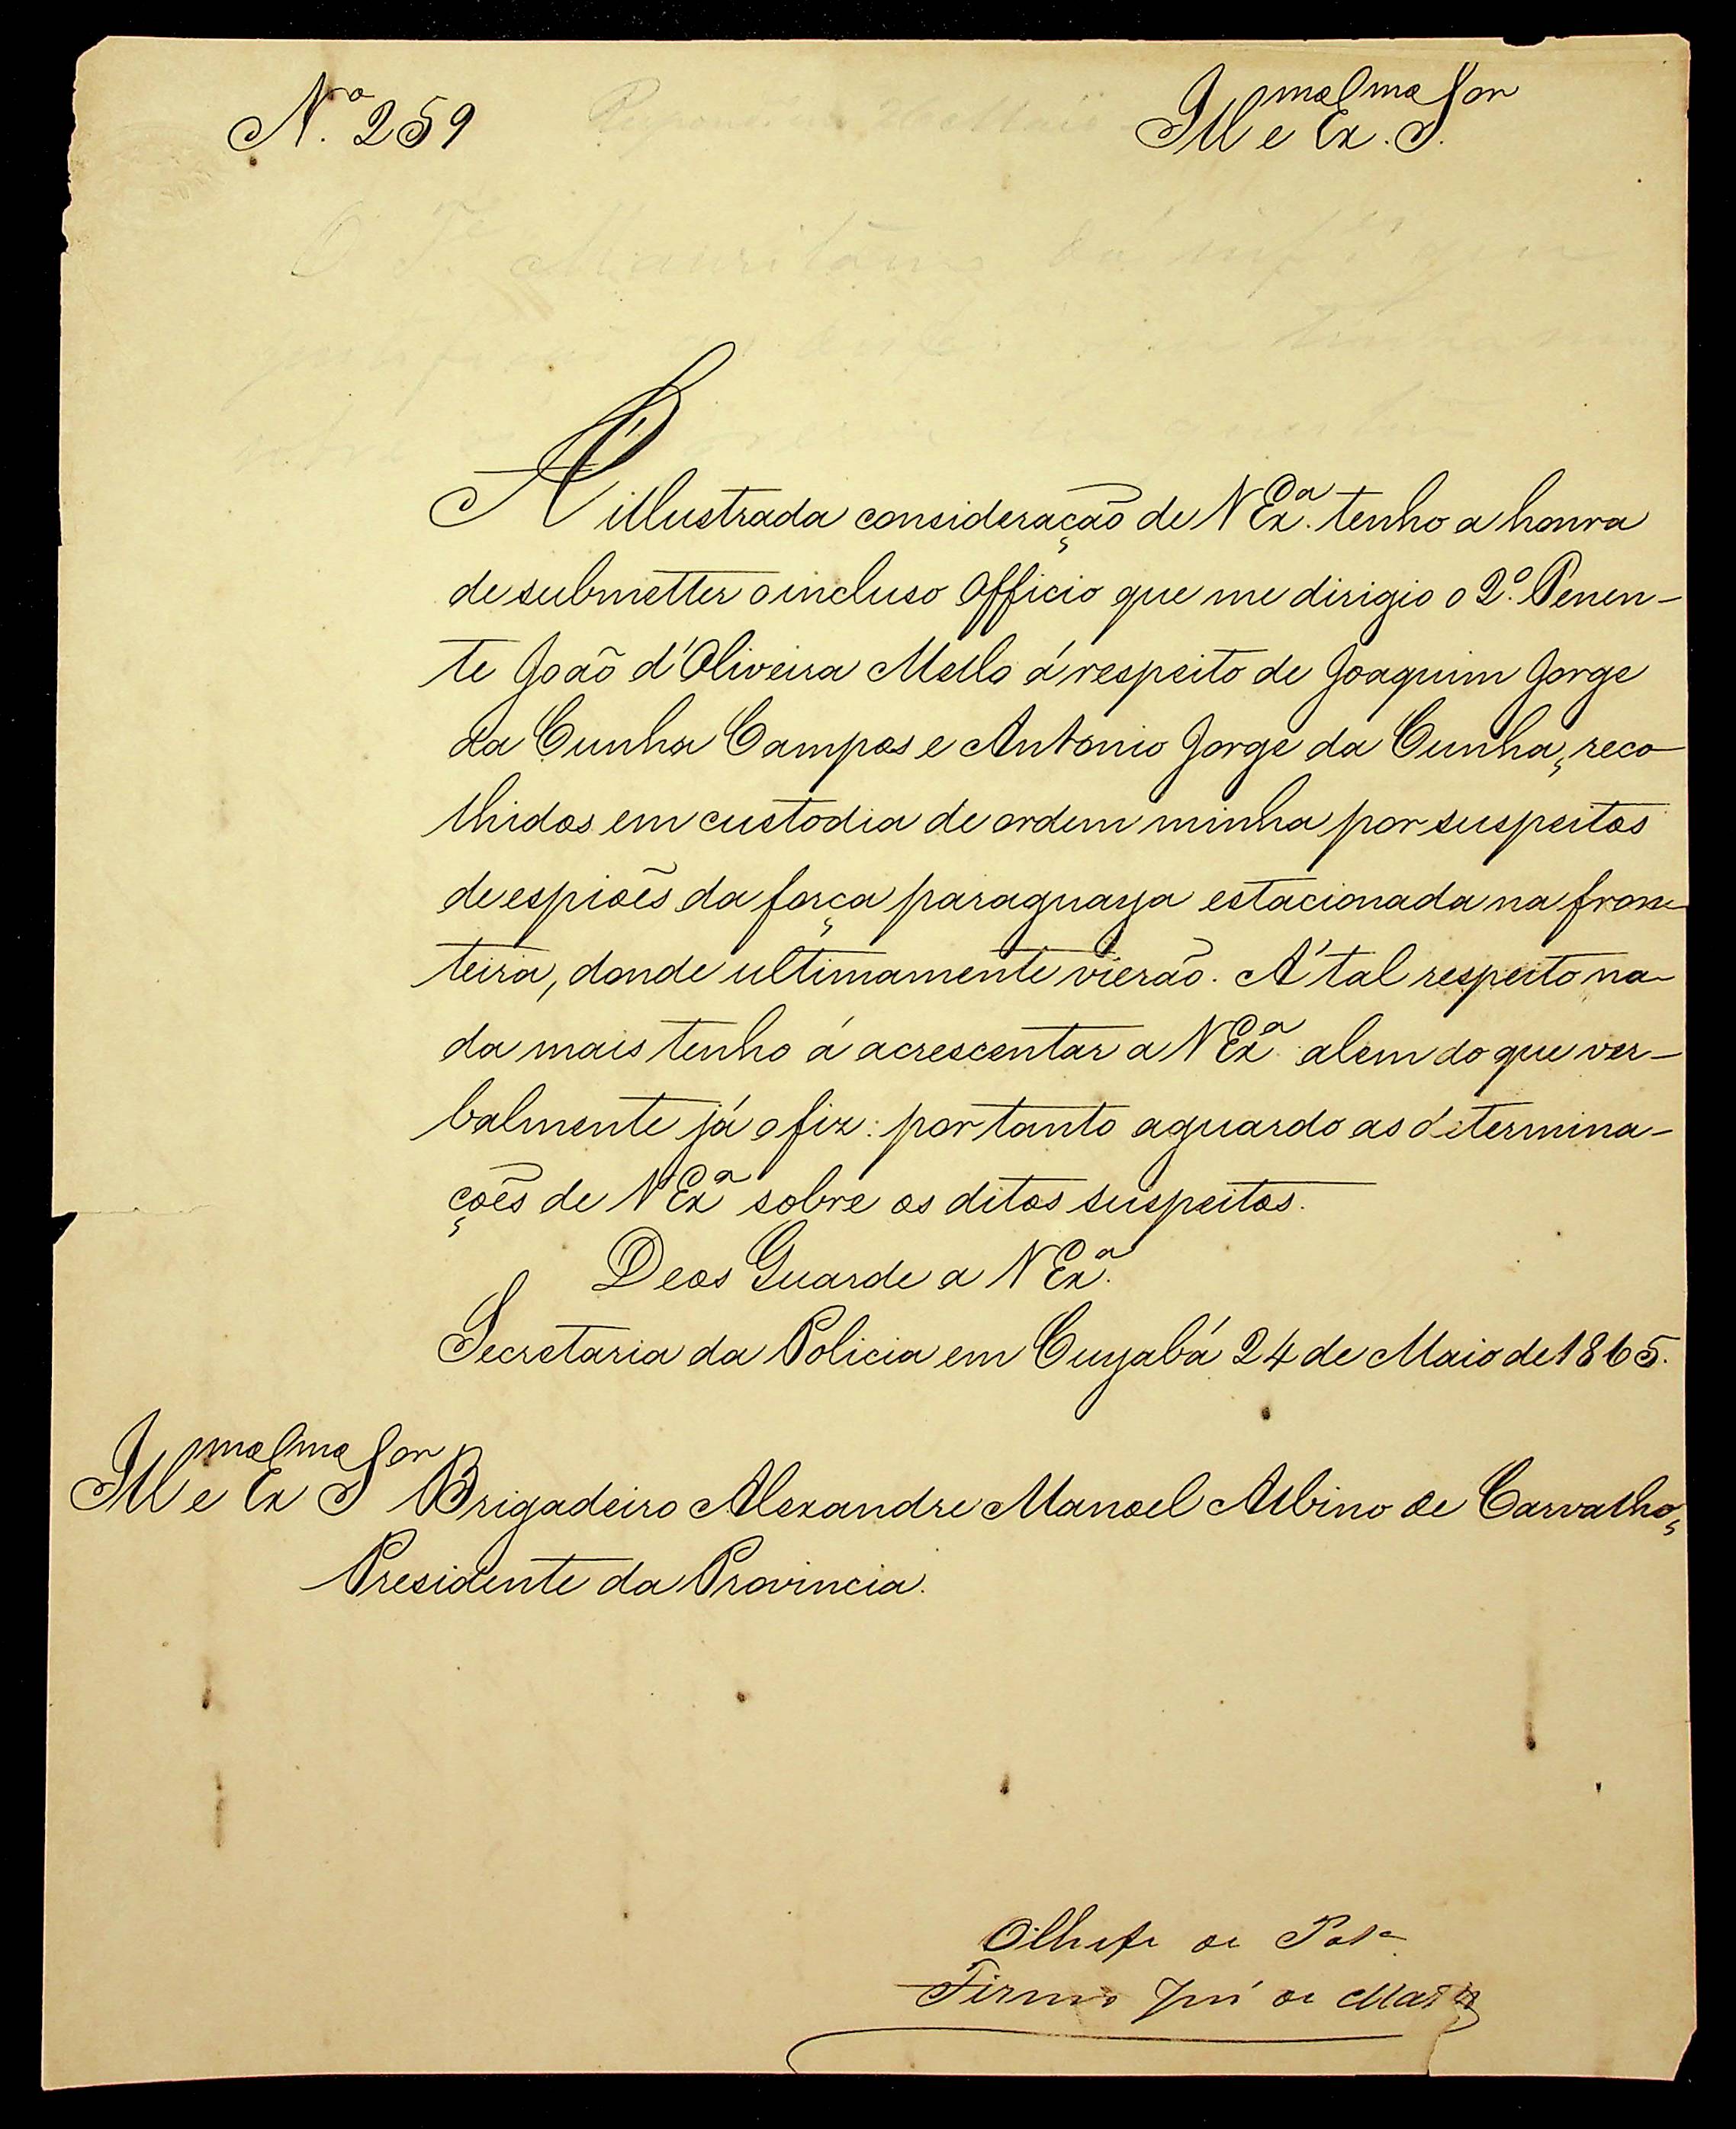 Nº 259
Illmo e Exmo Snr
A' illustrada consideração de V Exª tenho a honra
de submetter o incluso officio que me dirigio o 2º Tenen-
te João d'Oliveira Mello á respeito de Joaquim Jorge
da Cunha Campos e Antonio Jorge da Cunha, reco-
lhidos em custodia de ordem minha por suspeitos
de espiões da força paraguaya estacionada na fron-
teira, donde ultimamente vierão. A' tal respeito na-
da mais tenho á acrescentar a V Exª alem do que ver-
balmente já o fiz: por tanto aguardo as determina-
ções de V Exª sobre os ditos suspeitos.
Deos Guarde a V Exª
Secretaria da Policia em Cuyabá 24 de Maio de 1865.
Illmo e Exmo Snr Brigadeiro Alexandre Manoel Albino de Carvalho,
Presidente da Provincia.
O Chefe de Polª
Firmo José de Mattos